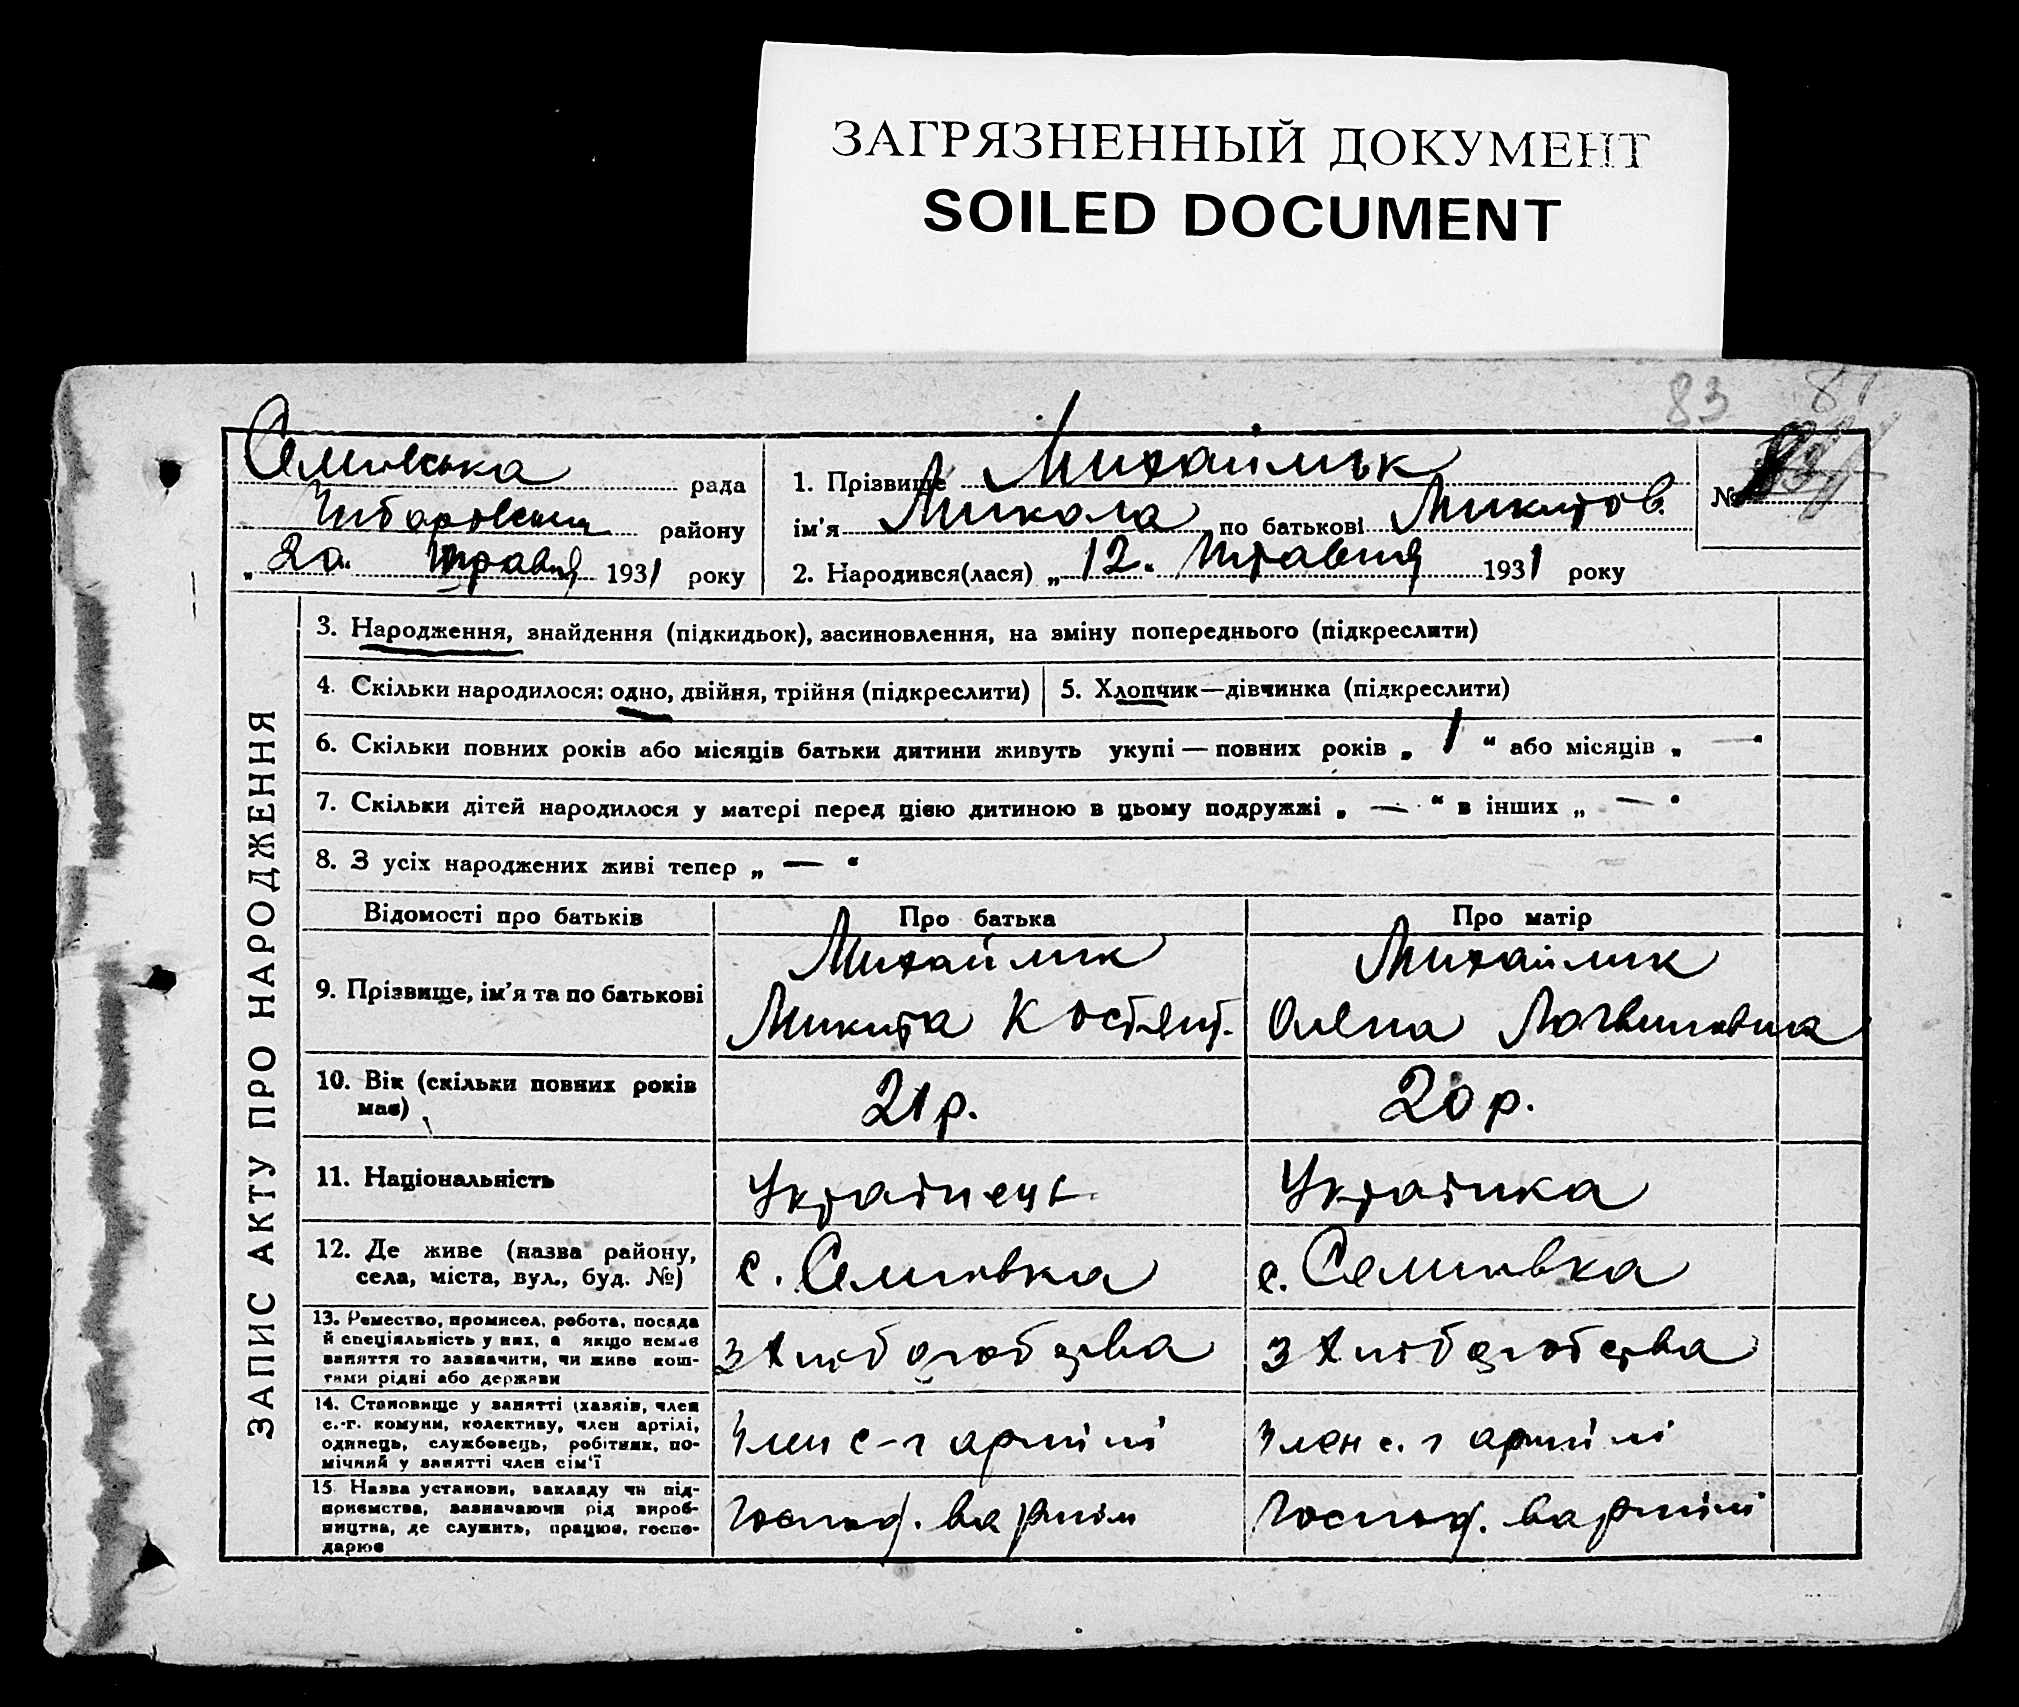 ЗАГРЯЗНЕННЫЙ ДОКУМЕНТ
SOILED DOCUMENT
83 81
Семивська рада
району
„ 20. травня 1931 року
1. Прізвище Михайлик
ім'я Микола по батькові Микитов.
2. Народився(лася) „ 12. травня 1931 року
№
ЗАПИС АКТУ ПРО НАРОДЖЕННЯ
3. Народження, знайдення (підкидьок), засиновлення, на зміну попереднього (підкреслити)
4. Скільки народилося: одно, двійня, трійня (підкреслити)
5. Хлопчик—дівчинка (підкреслити)
6. Скільки повних років або місяців батьки дитини живуть укупі — повних років „ 1 “ або місяців „ — “
7. Скільки дітей народилося у матері перед цією дитиною в цьому подружжі „ — “ в інших „ — “
8. З усіх народжених живі тепер „ — “
Відомості про батьків
Про батька
Про матір
9. Прізвище, ім'я та по батькові
Михайлик
Микита Костянт.
Михайлик
Олена Логвиновна
10. Вік (скільки повних років
має)
21 р.
20 р.
11. Національність
Українець
Українка
12. Де живе (назва району,
села, міста, вул., буд. №)
с. Семиовка
с. Семиовка
13. Ремество, промисел, робота, посада
й спеціяльність у них, а якщо немає
заняття то зазначити, чи живе кош-
тами рідні або держави
з хліборобства
з хліборобства
14. Становище у занятті (хазяїн, член
с.-г. комуни, колективу, член артілі,
одинець, службовець, робітник, по-
мічний у занятті член сім'ї
Член с-г артілі
Член с. г артілі
15. Назва установи, закладу чи під-
приємства, зазначаючи рід вироб-
ництва, де служить, працює, госпо-
дарює
Господ. в артілі
Господ. в артілі